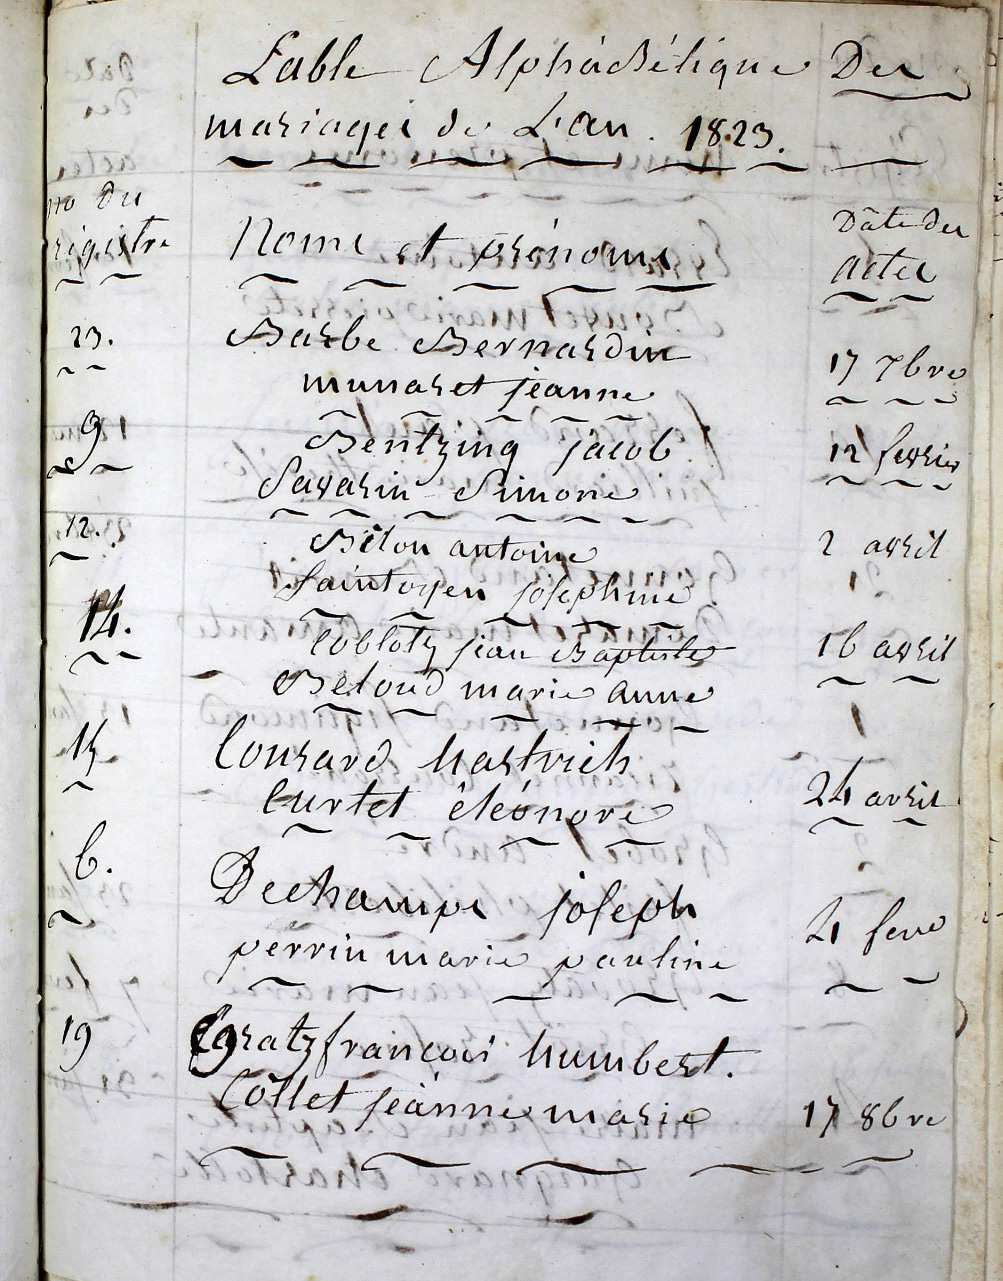 Table Alphabétique Des
mariages de L'an. 1823.
no du
registre
Noms et prénoms
Date des
actes
23.
Barbe Bernardin
munaret jeanne
17 7bre
9
Bentzing jacob
Savarin Simone
12 fevrier
12.
Béton antoine
Saintoyen josephine
2 avril
14.
Coblotz jean Baptiste
Betoud marie anne
16 avril
15
Conrard hastrich
Curtet éléonore
24 avril
6.
Dechamps joseph
perrin marie pauline
4 fevr
19
Gratz françois humbert.
Collet jeanne marie
17 8bre